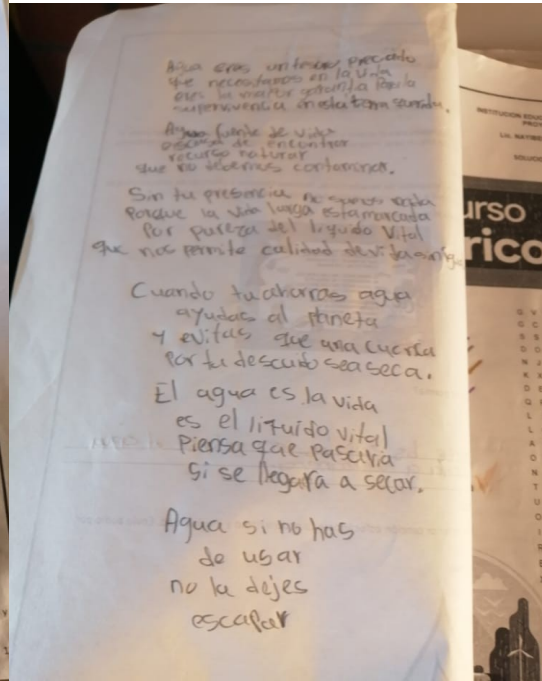 Agua eres un tesoro preciado
que necesitamos en la vida
eres la mayor garantía para la
supervivencia en esta tierra
Agua fuente de vida
escasa de encontrar
recurso natural
que no debemos contaminar.
Sin tu presencia no
Porque la vida larga esta marcada
Por pureza del liquido Vital
que nos permite calidad de vida
Cuando tu ahorras agua
ayudas al Planeta
y evitas que una cuenca
Por tu descuido sea seca.
El agua es la vida
es el liquido vital
Piensa que Pasaria
si se llegara a secar.
Agua si no has
de usar
no la dejes
escapar
INSTITUCION EDUC
PROY
LIC. NAYIBE
SOLUCIO
urso
rico